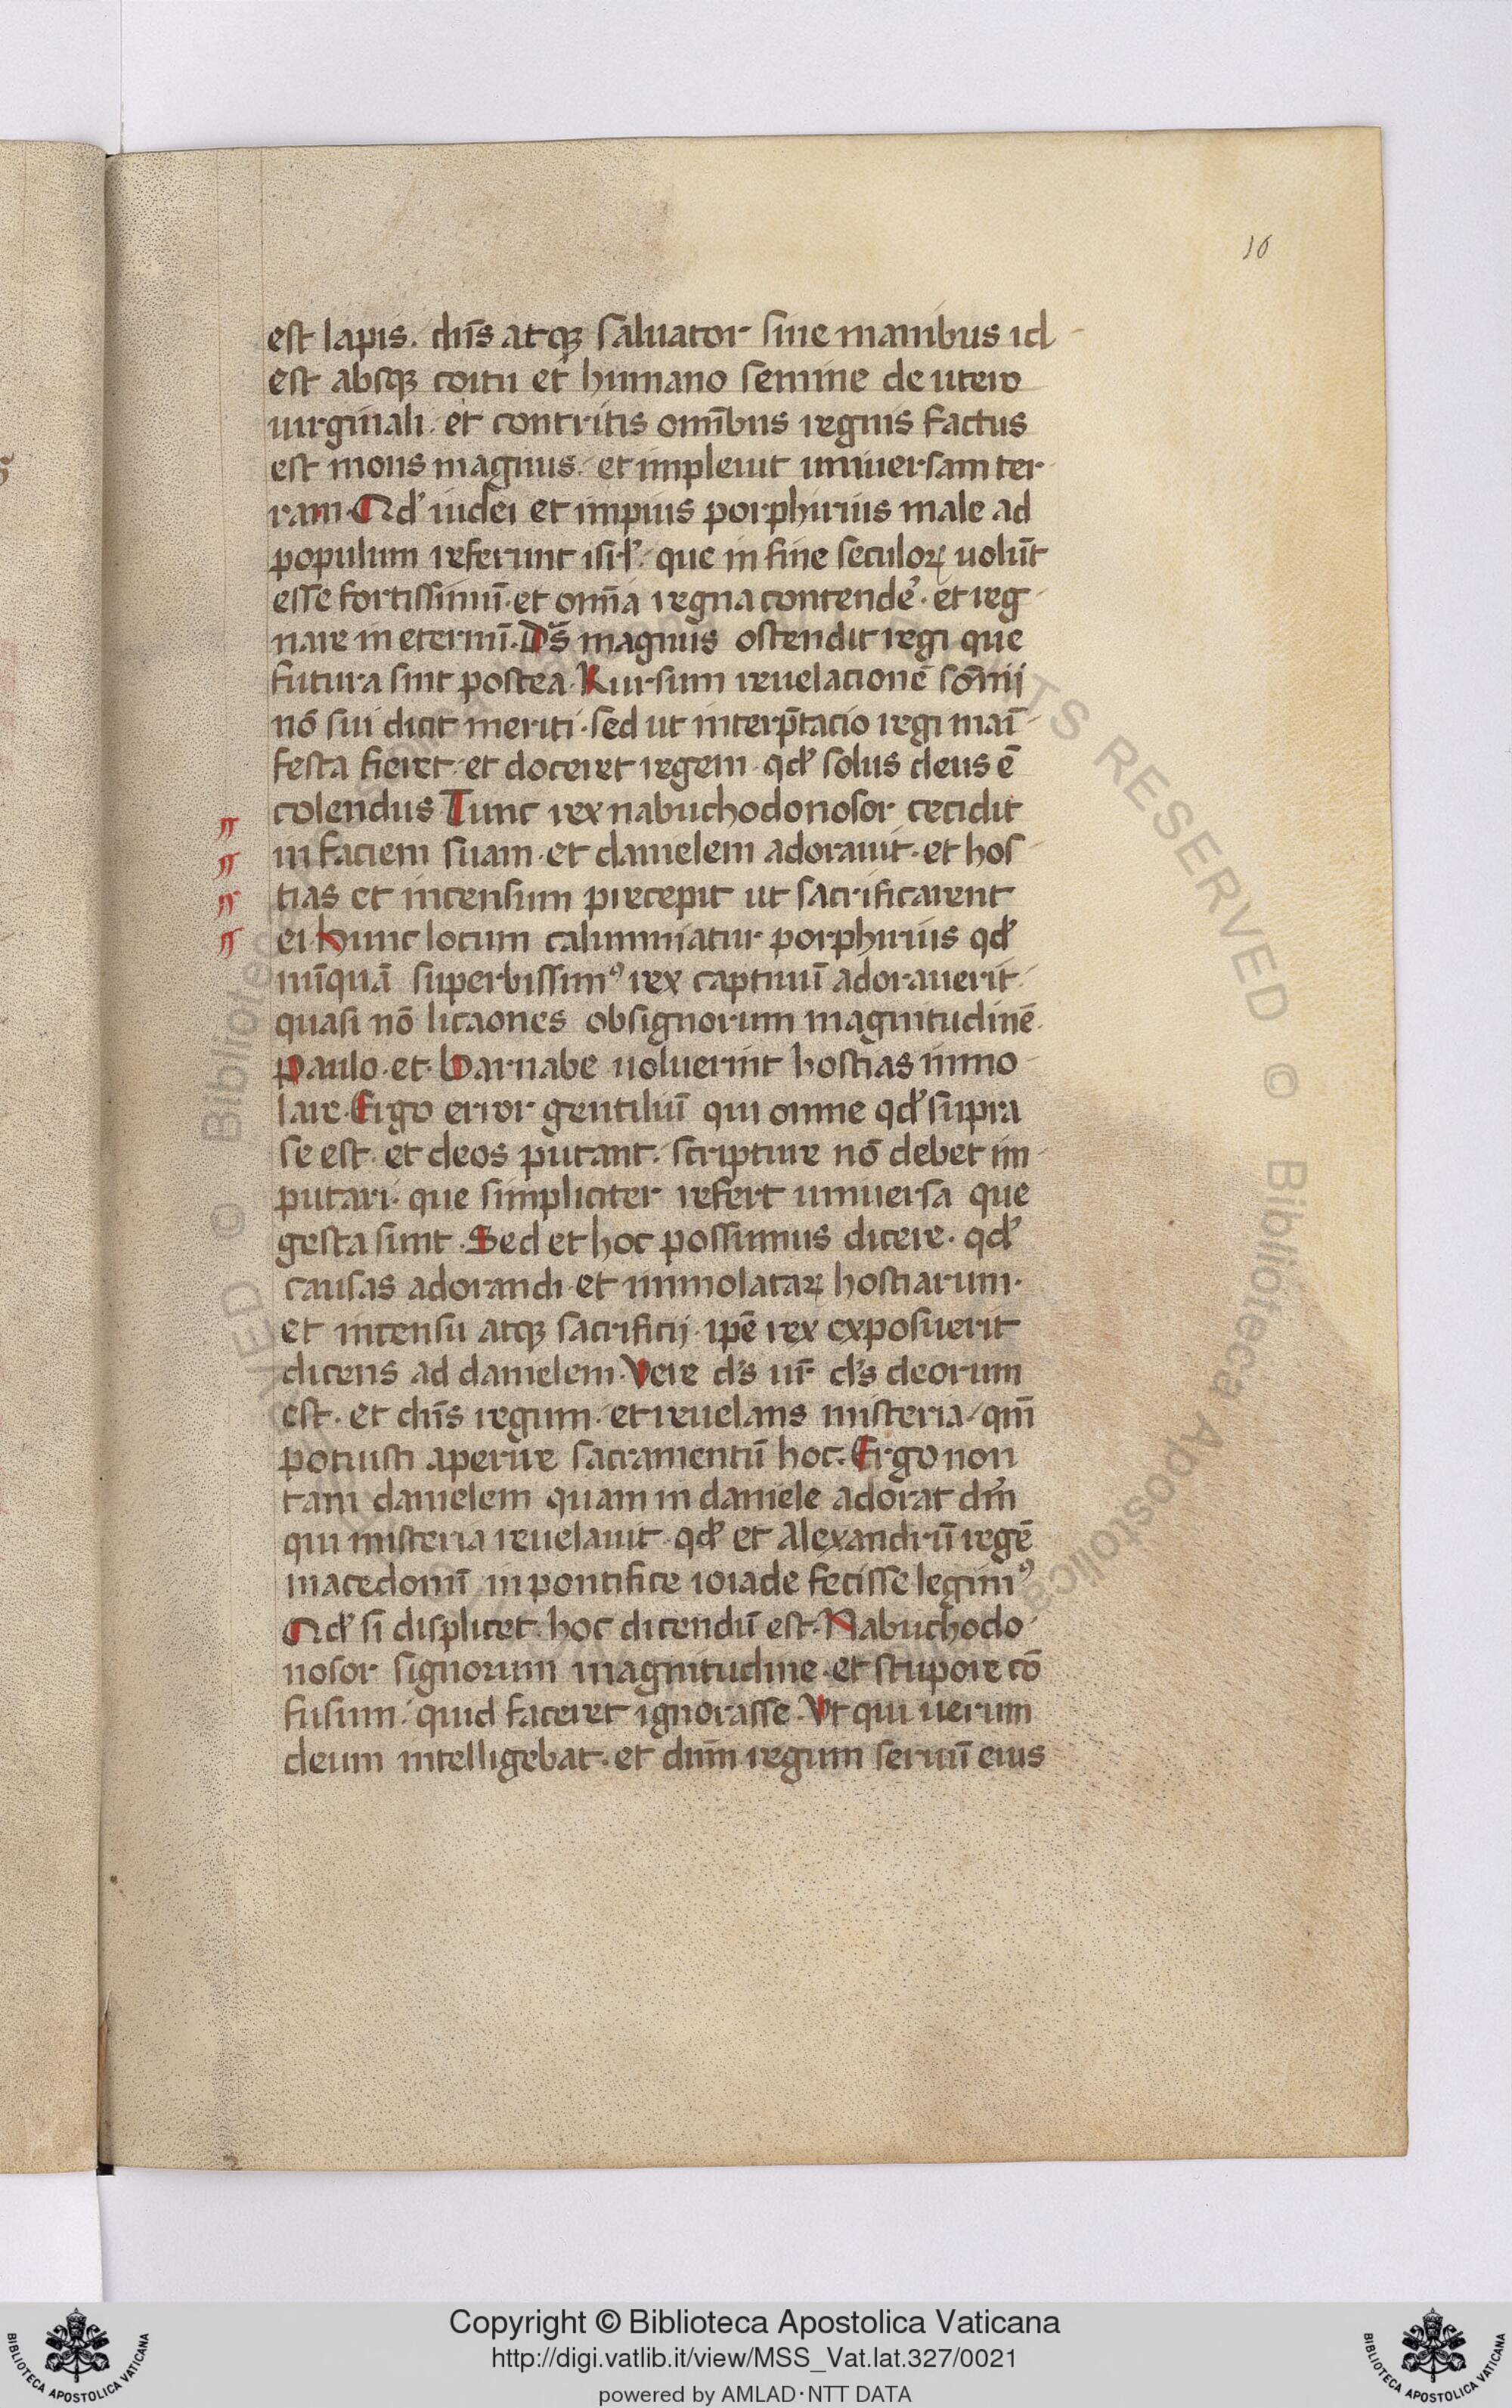 16
est lapis. dn̄s atqꝫ saluator sine manibus id
est absqꝫ coitu et humano semine de utero
uirginali. et contritis omībus regnis factus
est mons magnus. et impleuit uniuersam ter
ram. Qd' iudei et impius porphirius male ad
populum referunt isrł. que in fine seculoꝝ uolūt
esse fortissimū. et om̄ia regna contende᷒. et reg
nare in eternū. Ds̄ magnus ostendit regi que
futura sint postea. Rursum reuelacionē som̄ii
nō sui dicit meriti. sed ut interp̄tacio regi maī
festa fieret. et doceret regem. qd' solus deus ē
colendus Tunc rex nabuchodonosor cecidit
in faciem suam. et danielem adorauit. et hos
tias et incensum precepit ut sacrificarent
ei. Hunc locum calumniatur porphirius qd'
nūquā superbissimꝰ rex captiuū adorauerit.
quasi nō licaones obsignorum magnitudinē.
Paulo. et. Barnabe uoluerint hostias inmo
lare. Ergo error gentiliū qui omne qd' supra
se est. et deos putant. scripture nō debet im
putari. que simpliciter refert uniuersa que
gesta sunt. Sed et hoc possumus dicere. qd'
causas adorandi. et inmolataꝝ hostiarum.
et incensu atqꝫ sacrificij. ipē rex exposuerit
dicens ad danielem. Vere d's ur̄ d's deorum
est. et dn̄s regum. et reuelans misteria. qm̄
potuisti aperire sacramentū hoc. Ergo non
tam danielem quam in daniele adorat dm̄
qui misteria reuelauit. qd' et Alexandrū regē
macedonū in pontifice ioiade fecisse legimꝰ
Qd' si displicet. hoc dicendū est. Nabuchodo
nosor signorum magnitudine. et stupore cō
fusum. quid faceret ignorasse. Vt qui uerum
deum intelligebat. et dn̄m regum seruū eius
Copyright © Biblioteca Apostolica Vaticana
http://digi.vatlib.it/view/MSS_Vat.lat.327/0021
powered by AMLAD·NTT DATA